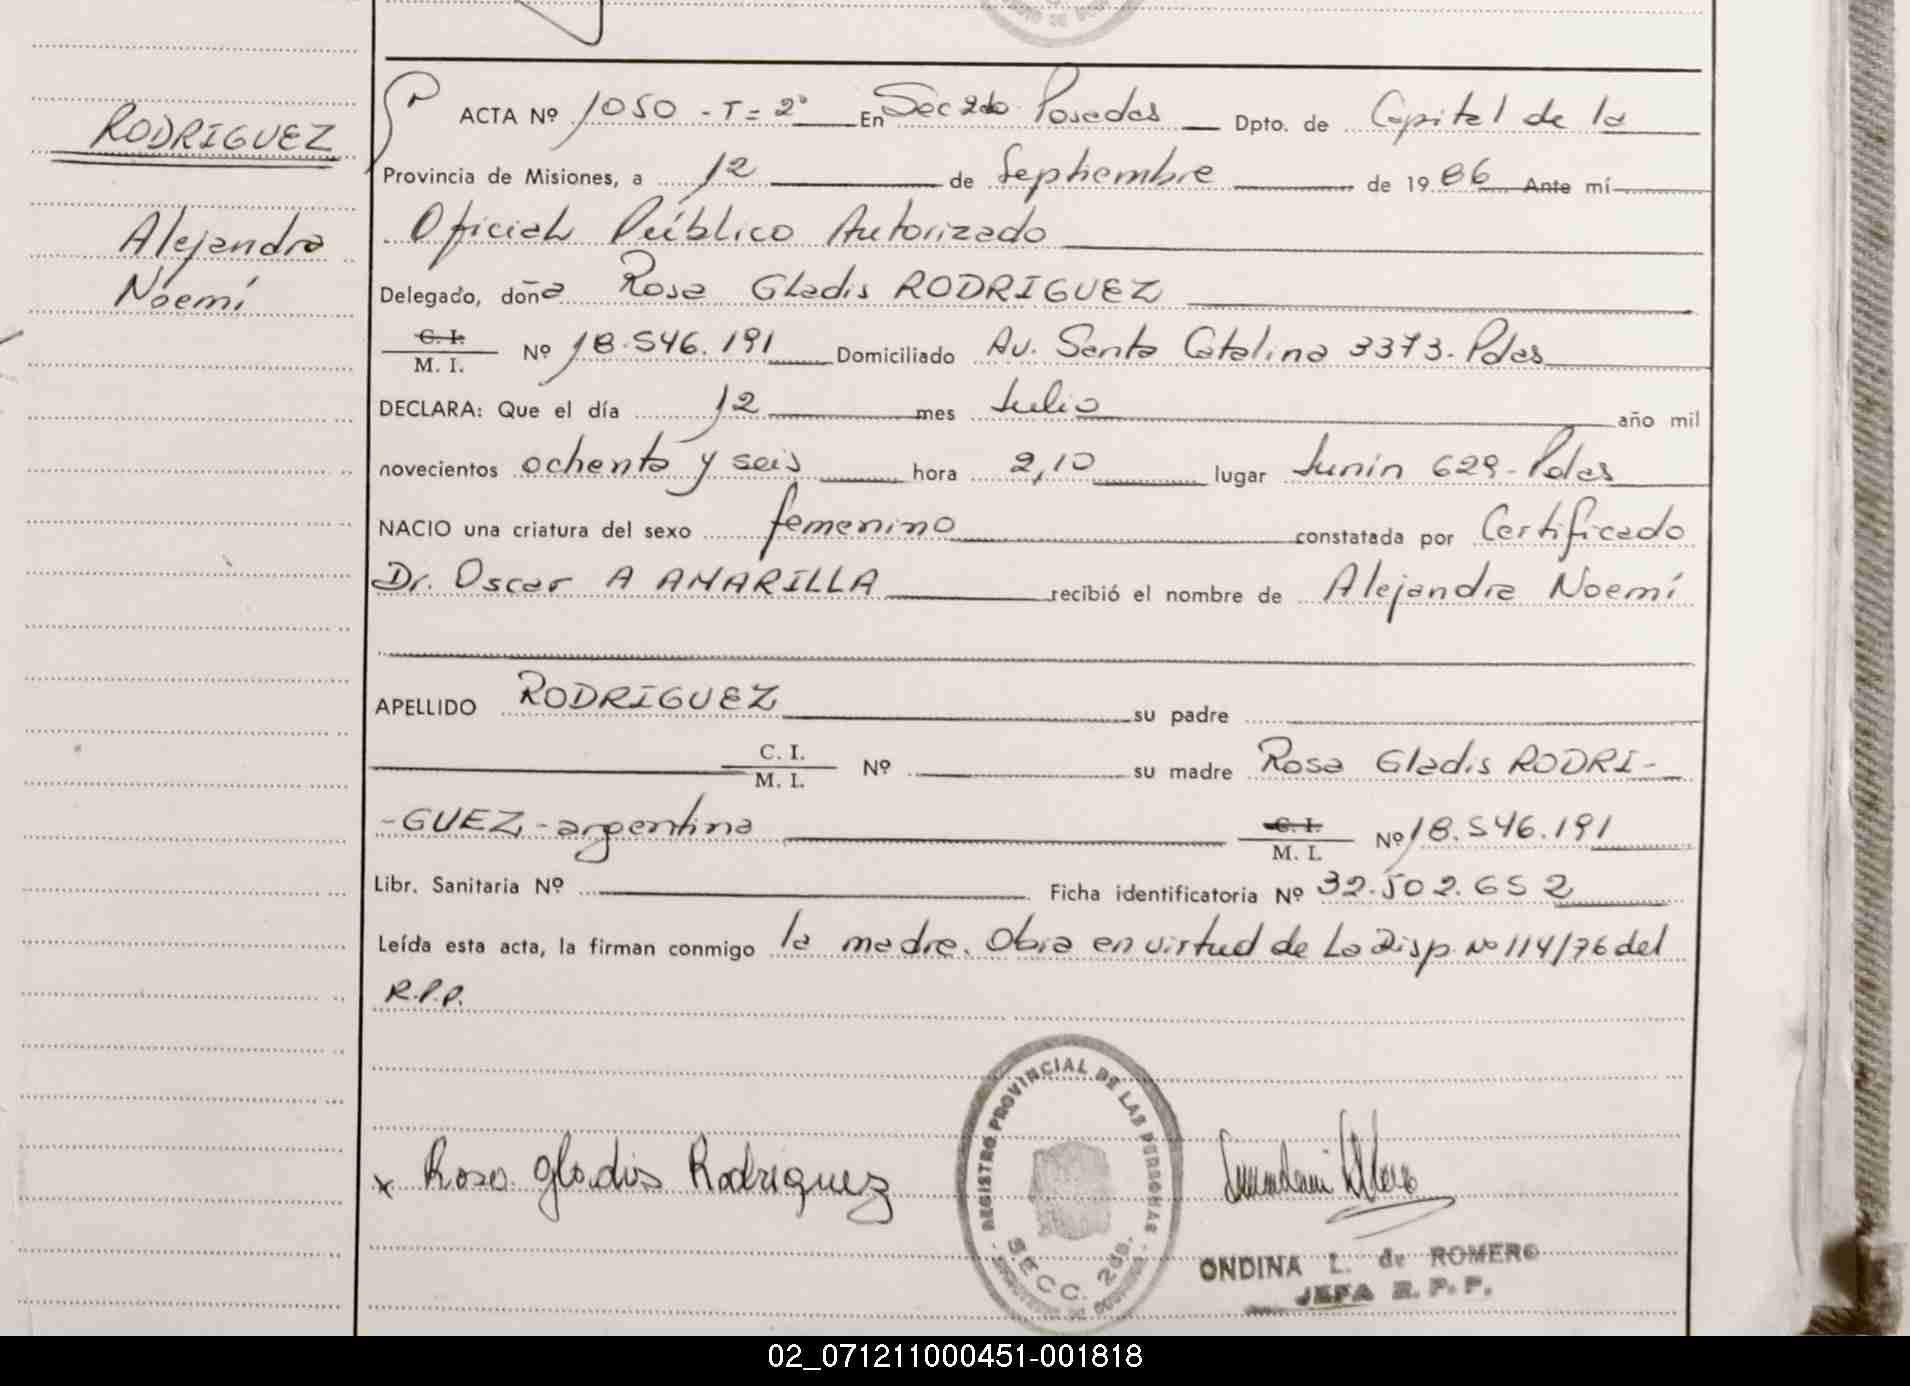 RODRIGUEZ
Alejandra
Noemí
ACTA Nº 1050 - T = 2º En Sec 2da Posadas Dpto. de Capital de la
Provincia de Misiones, a 12 de Septiembre de 1986 Ante mí
Oficial Público Autorizado
Delegado, doña Rosa Gladis RODRIGUEZ
C. I.
M. I. Nº 18.546.191 Domiciliado Av. Santa Catalina 3373. Pdas
DECLARA: Que el día 12 mes Julio año mil
novecientos ochenta y seis hora 2,10 lugar Junín 629 - Pdas
NACIO una criatura del sexo femenino constatada por Certificado
Dr. Oscar A AMARILLA recibió el nombre de Alejandra Noemí
APELLIDO RODRIGUEZ su padre
C. I.
M. I. Nº su madre Rosa Gladis RODRI-
-GUEZ - argentina C. I.
M. I. Nº 18.546.191
Libr. Sanitaria Nº Ficha identificatoria Nº 32.502.652
Leída esta acta, la firman conmigo la madre. Obra en virtud de La Disp. Nº 114/76 del
R.P.P.
x Rosa Gladis Rodriguez
REGISTRO PROVINCIAL DE LAS PERSONAS
SECC. 2da.
ONDINA L. de ROMERO
JEFA R. P. P.
02_071211000451-001818